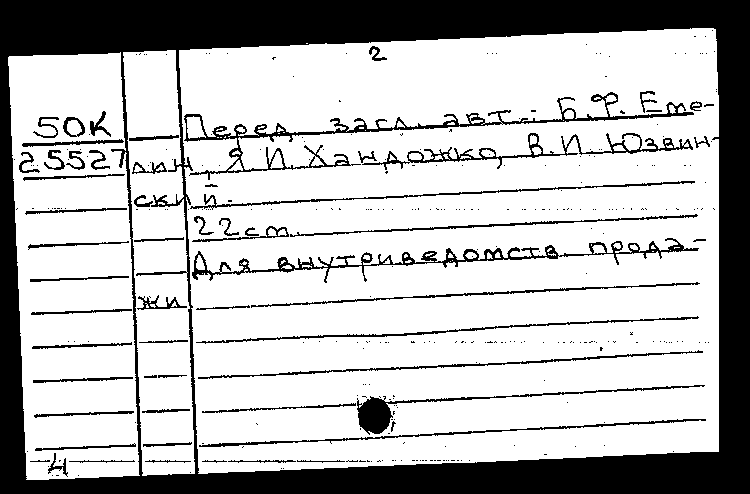 2
50К Перед загл. авт.: Б.Ф. Еме-
25527 лин, Я.И. Хандожко, В.И. Юзвин-
ский.
22см.
Для внутриведомств. прода-
жи